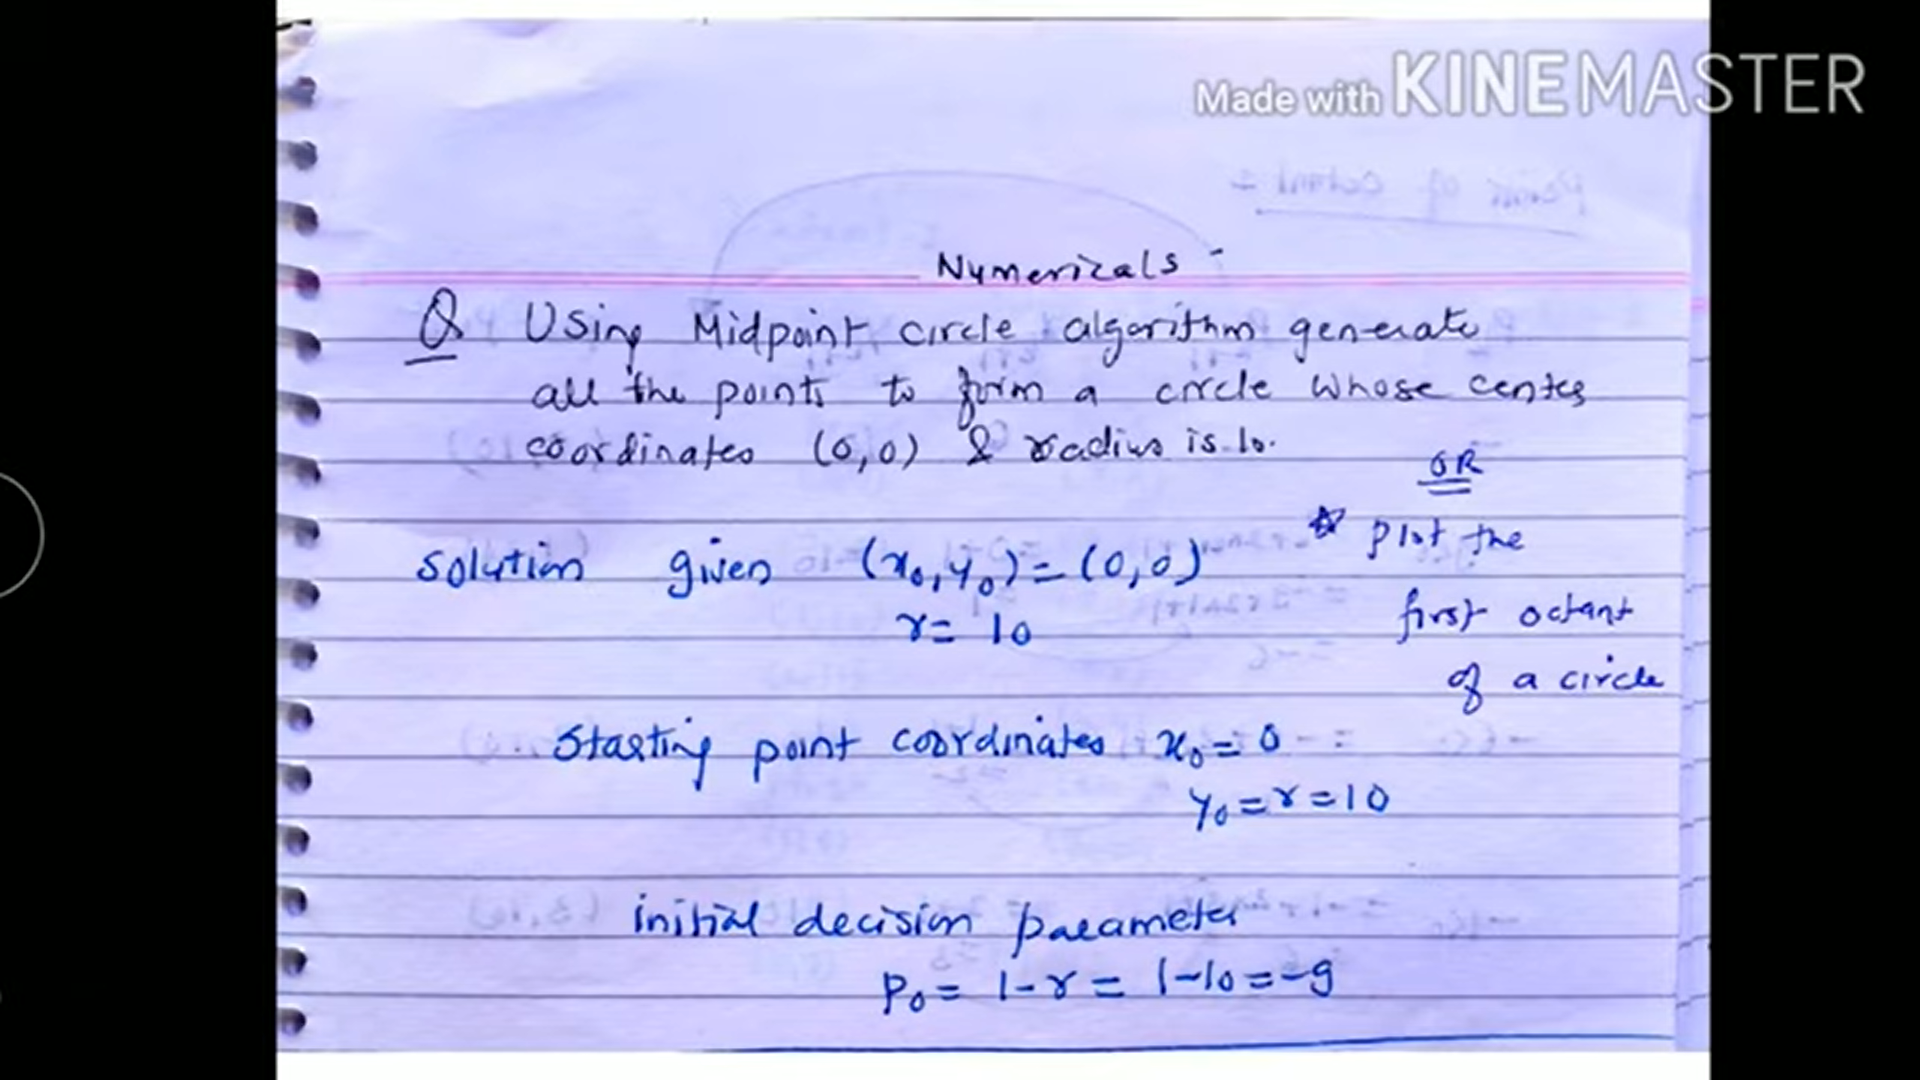 Made with KINEMASTER
Numericals -
Q Using Midpoint circle algorithm generate
all the points to form a circle whose center
coordinates (0,0) & radius is 10.
OR
solution given (x₀,y₀)=(0,0)
☆ plot the
r= 10
first octant
of a circle
Starting point coordinates x₀=0
y₀=r=10
initial decision parameter
P₀= 1-r= 1-10=-9